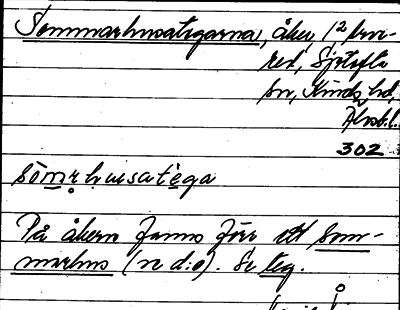 Sommarhusategarna, åker, (2
red, Sjötofta
sn, Kinds hd,
Älvsb. l.
302
såmrhusatega
På åkern fanns förr ett Som-
marhus (n d:o). Se teg.